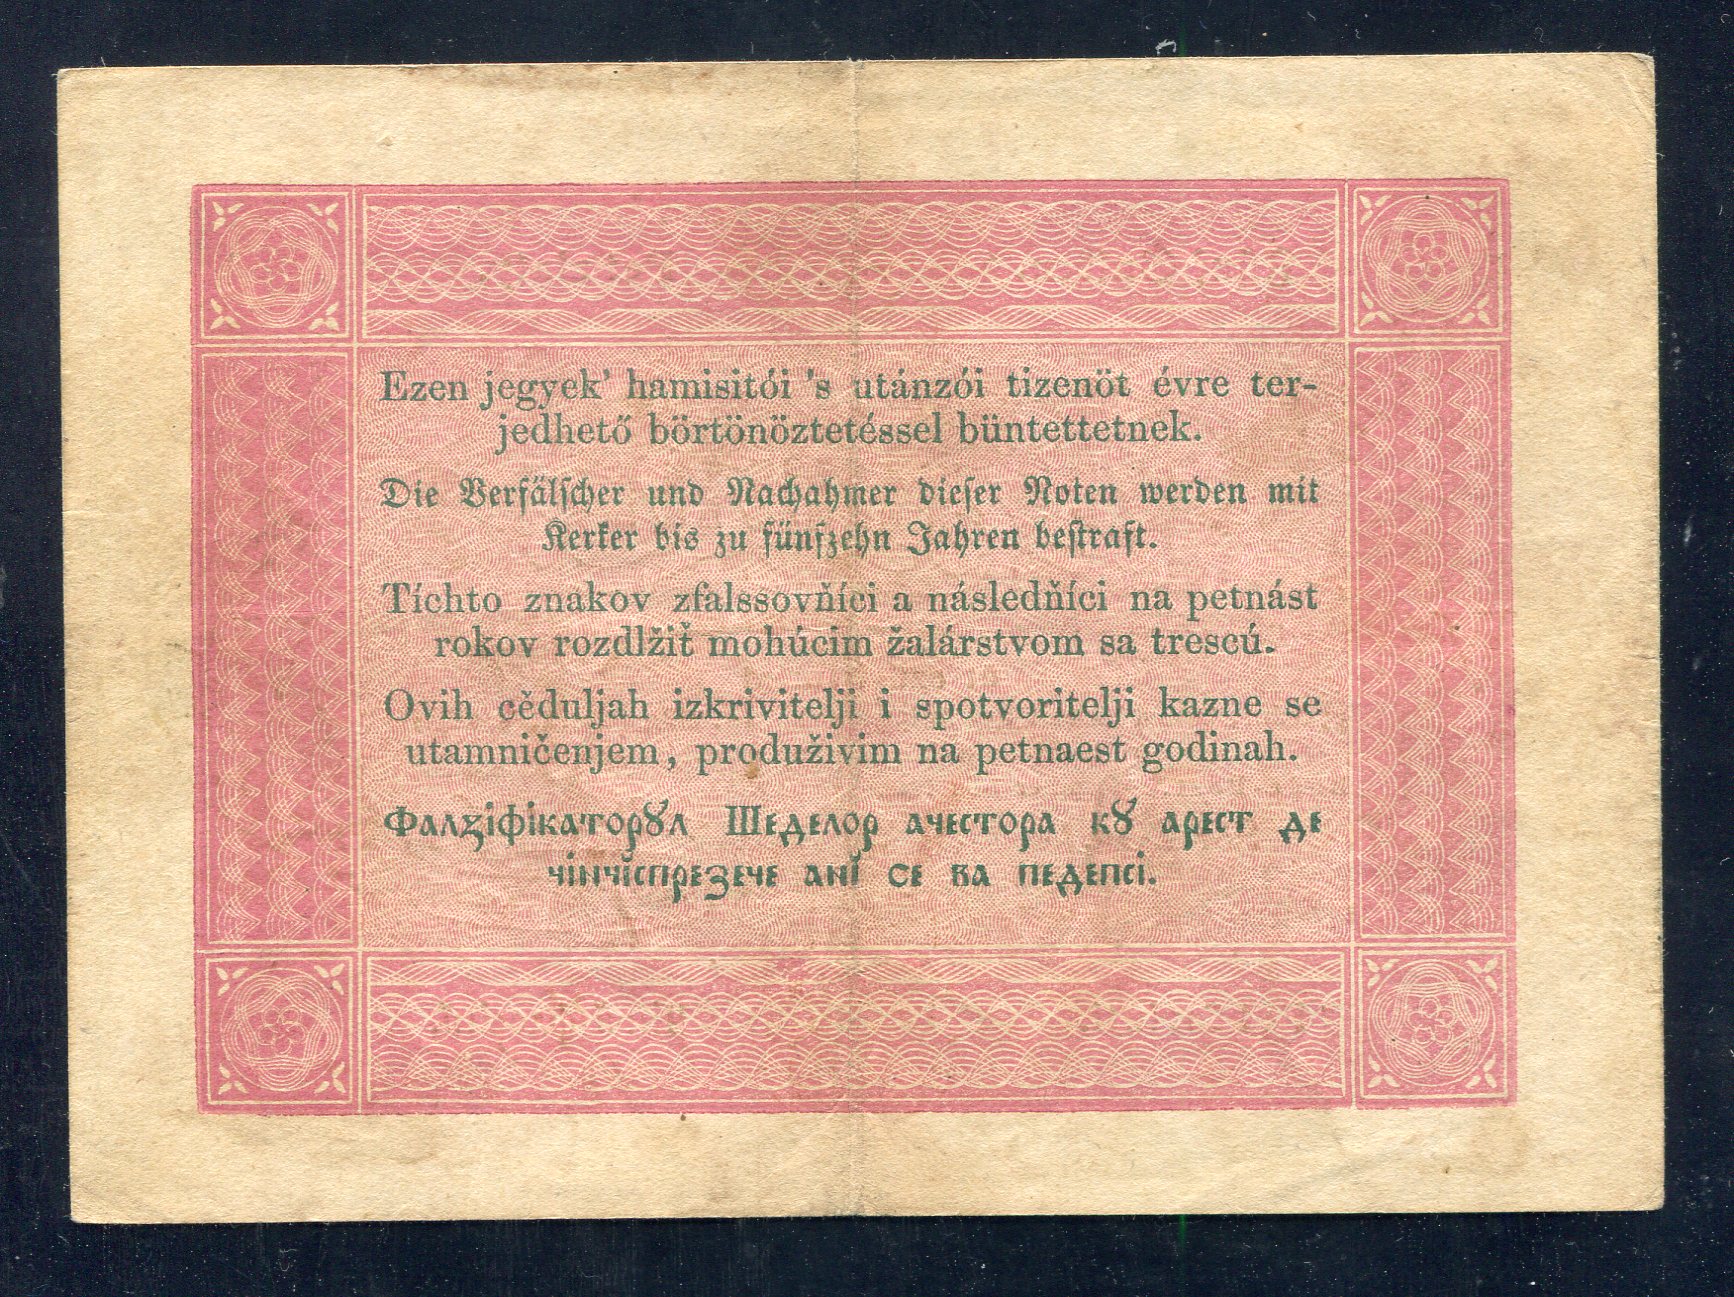 Ezen jegyek’ hamisitói ’s utánzói tizenöt évre ter-
jedhető börtönöztetéssel büntettetnek.
Die Verfälscher und Nachahmer dieser Noten werden mit
Kerker bis zu fünfzehn Jahren bestraft.
Tíchto znakov zfalssovňíci a následňíci na petnást
rokov rozdlžiť mohúcim žalárstvom sa trescú.
Ovih cěduljah izkrivitelji i spotvoritelji kazne se
utamničenjem, produživim na petnaest godinah.
Фалзіфікаторꙋл Шеделор ачестора кꙋ арест де
чінчĭспрезече анĭ се ва педепсі.